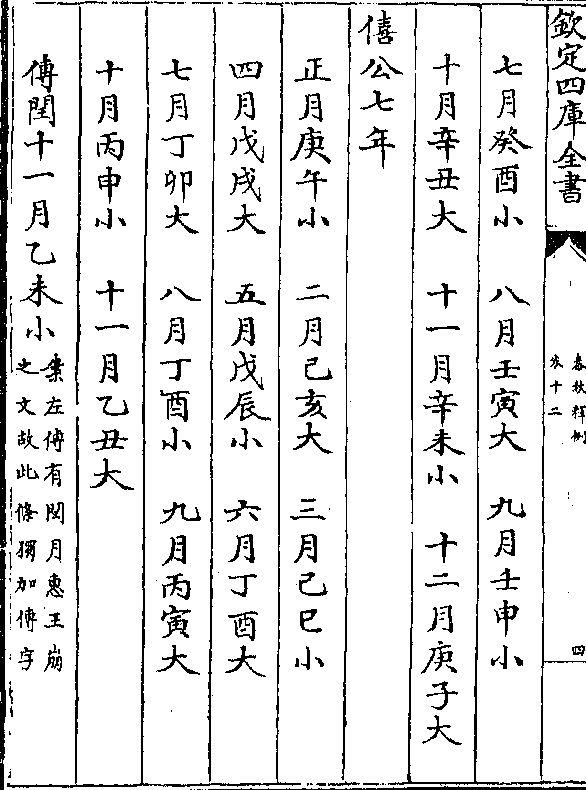 欽定四庫全書
春秋釋例
卷十二
四
七月癸酉小　八月壬寅大　九月壬申小
十月辛丑大　十一月辛未小　十二月庚子大
僖公七年
正月庚午小　二月己亥大　三月己巳小
四月戊戌大　五月戊辰小　六月丁酉大
七月丁卯大　八月丁酉小　九月丙寅大
十月丙申小　十一月乙丑大
傳閏十一月乙未小案左傳有閏月惠王崩
之文故此條獨加傳字